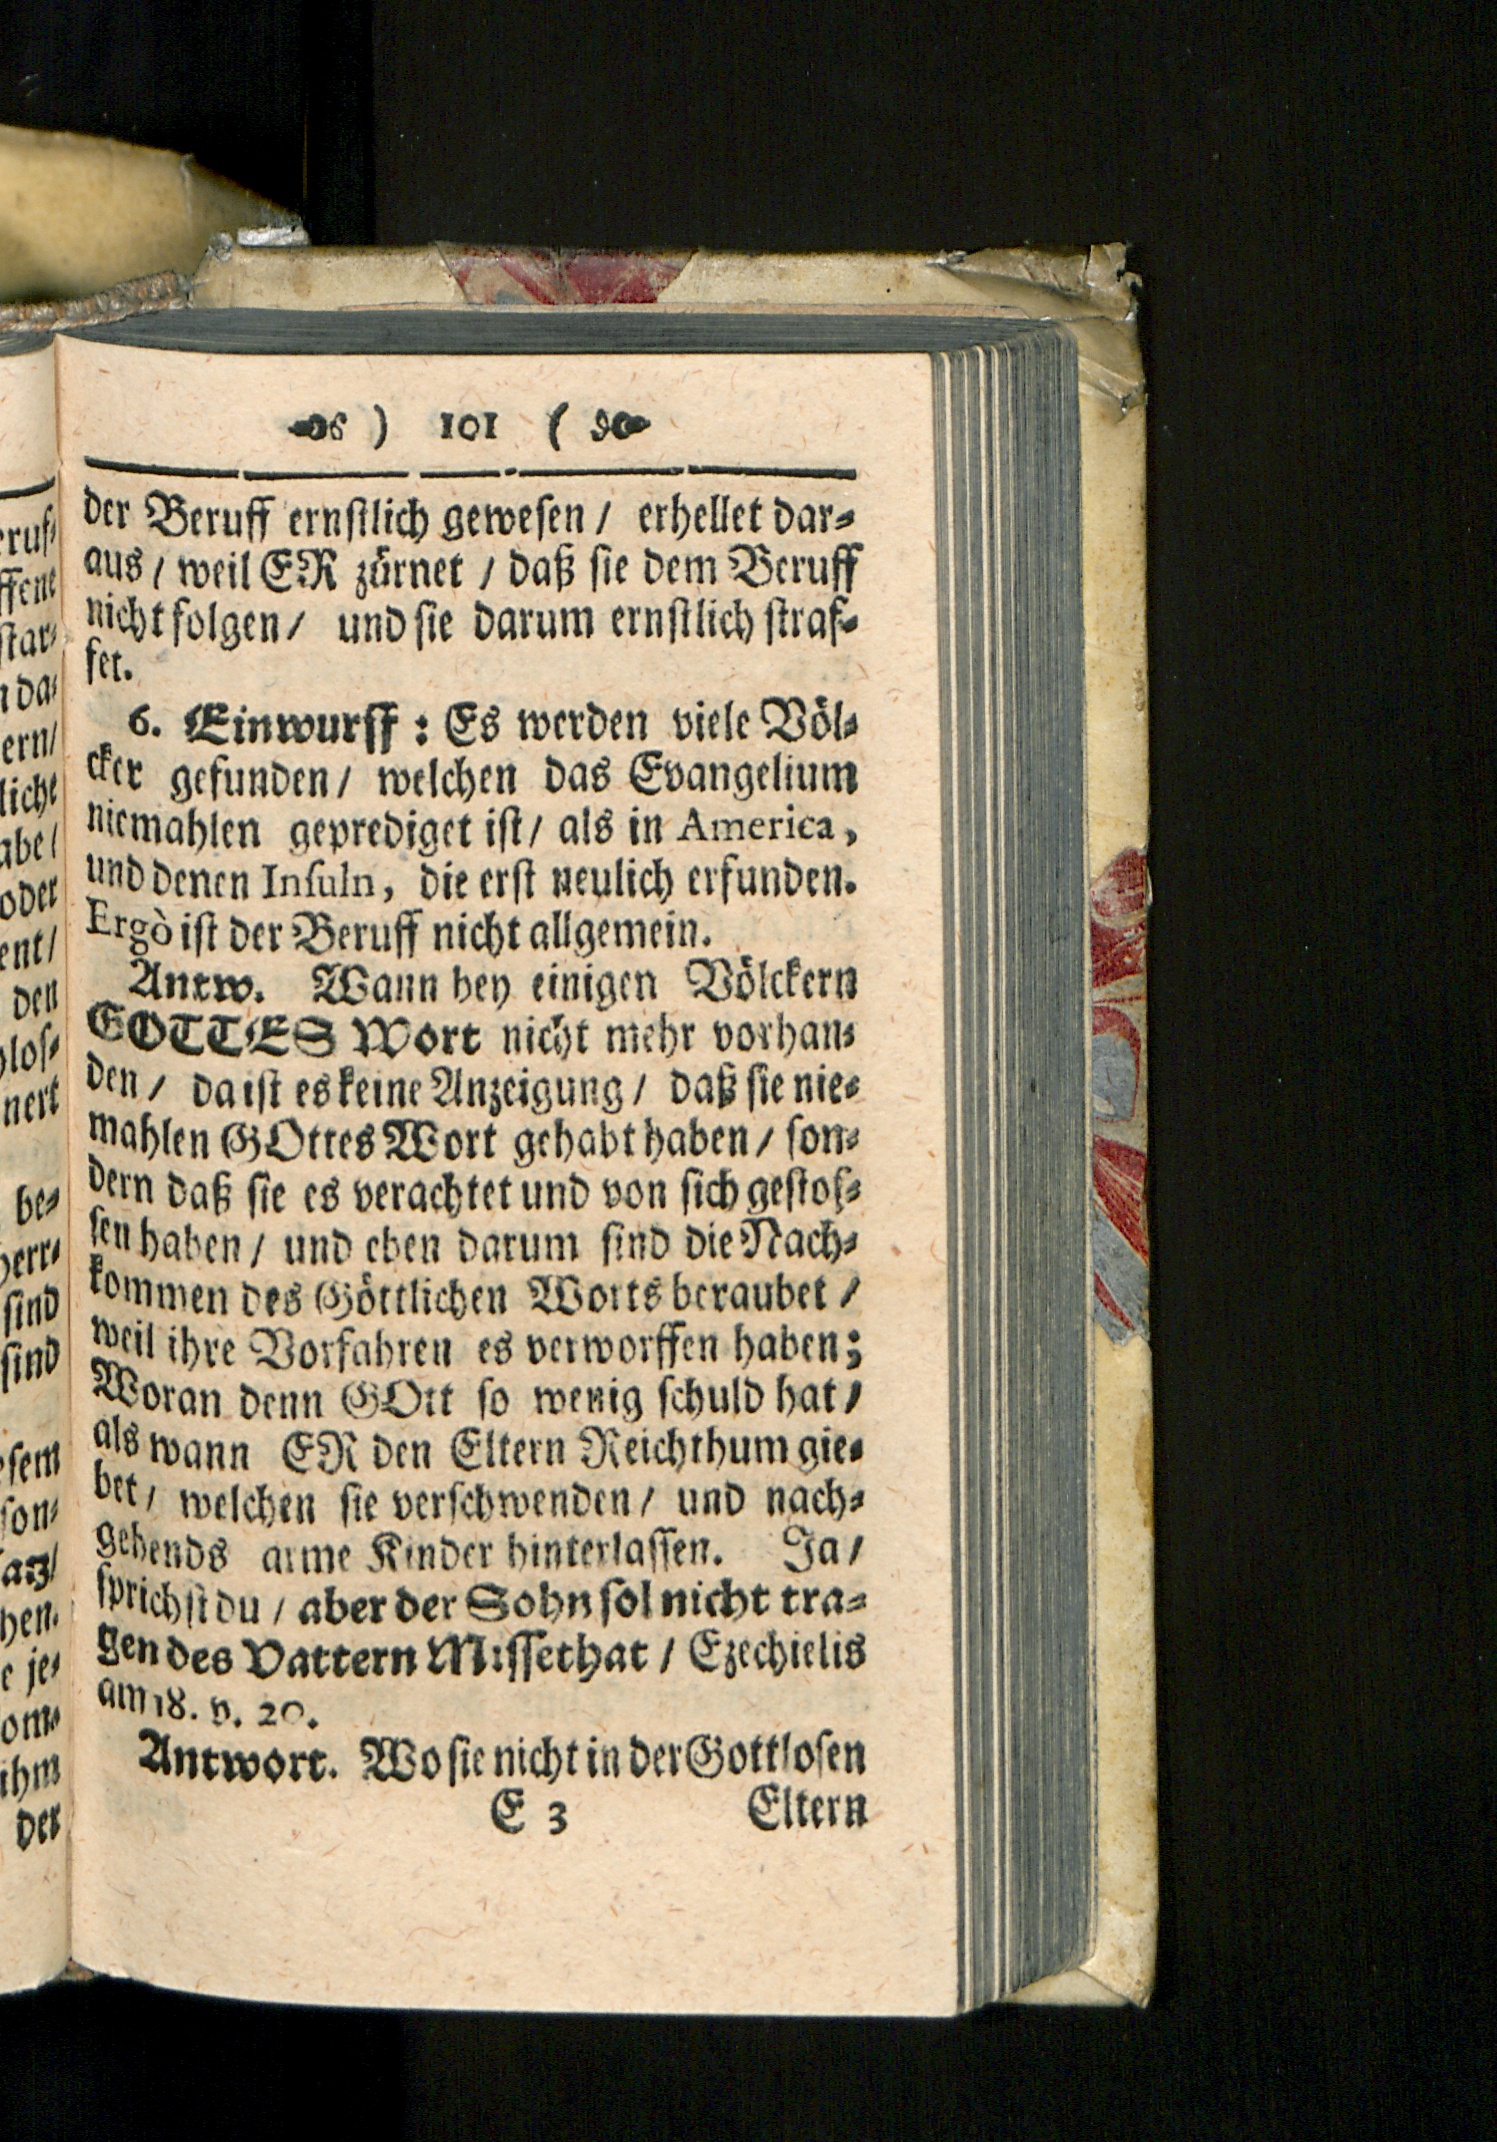 ) 101 (
der Beruff ernstlich gewesen / erhellet dar-
aus / weil ER zürnet / daß sie dem Beruff
nicht folgen / und sie darum ernstlich straf-
fet.
6. Einwurff : Es werden viele Völ-
cker gefunden / welchen das Evangelium
niemahlen geprediget ist / als in America,
und denen Insuln, die erst neulich erfunden.
Ergò ist der Beruff nicht allgemein.
Antw. Wann bey einigen Völckern
GOTTES Wort nicht mehr vorhan-
den / da ist es keine Anzeigung / daß sie nie-
mahlen GOttes Wort gehabt haben / son-
dern daß sie es verachtet und von sich gestos-
sen haben / und eben darum sind die Nach-
kommen des Göttlichen Worts beraubet /
weil ihre Vorfahren es verworffen haben;
Woran denn GOtt so wenig schuld hat /
als wann ER den Eltern Reichthum gie-
bet / welchen sie verschwenden / und nach-
gehends arme Kinder hinterlassen. Ja /
sprichst du / aber der Sohn sol nicht tra-
gen des Vattern Missethat / Ezechielis
am 18. v. 20.
Antwort. Wo sie nicht in der Gottlosen
E 3 Eltern